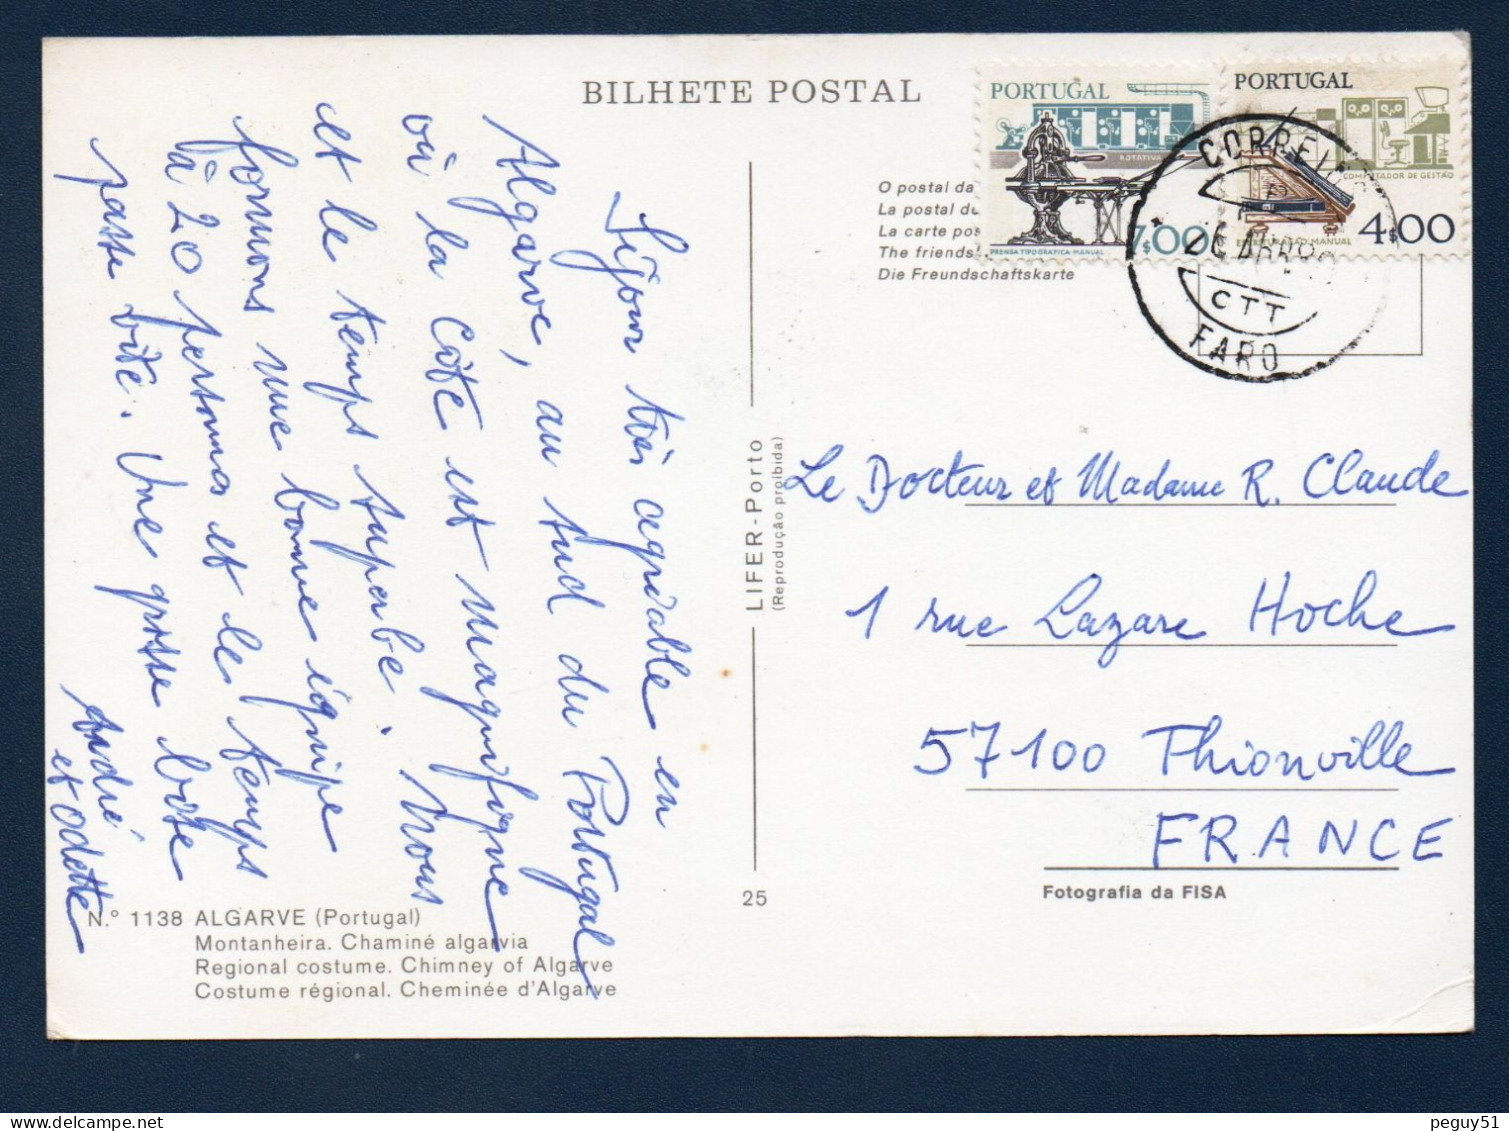 BILHETE POSTAL
Séjour très agréable en
Algarve, au sud du Portugal
où la côte est magnifique
et le temps superbe. Nous
formons une bonne équipe
à 20 personnes et le temps
passe vite. Une grosse bise
André
et Odette
N.º 1138 ALGARVE (Portugal)
Montanheira. Chaminé algarvia
Regional costume. Chimney of Algarve
Costume régional. Cheminée d'Algarve
LIFER - Porto
(Reprodução proibida)
25
O postal da
La postal de
La carte pos
The friends
Die Freundschaftskarte
PORTUGAL
ROTATIVA
7$00
PRENSA TIPOGRÁFICA MANUAL
PORTUGAL
COMPUTADOR DE GESTÃO
4$00
MANUAL
CORREIOS
CTT
FARO
Le Docteur et Madame R. Claude
1 rue Lazare Hoche
57100 Thionville
FRANCE
Fotografia da FISA
peguy51